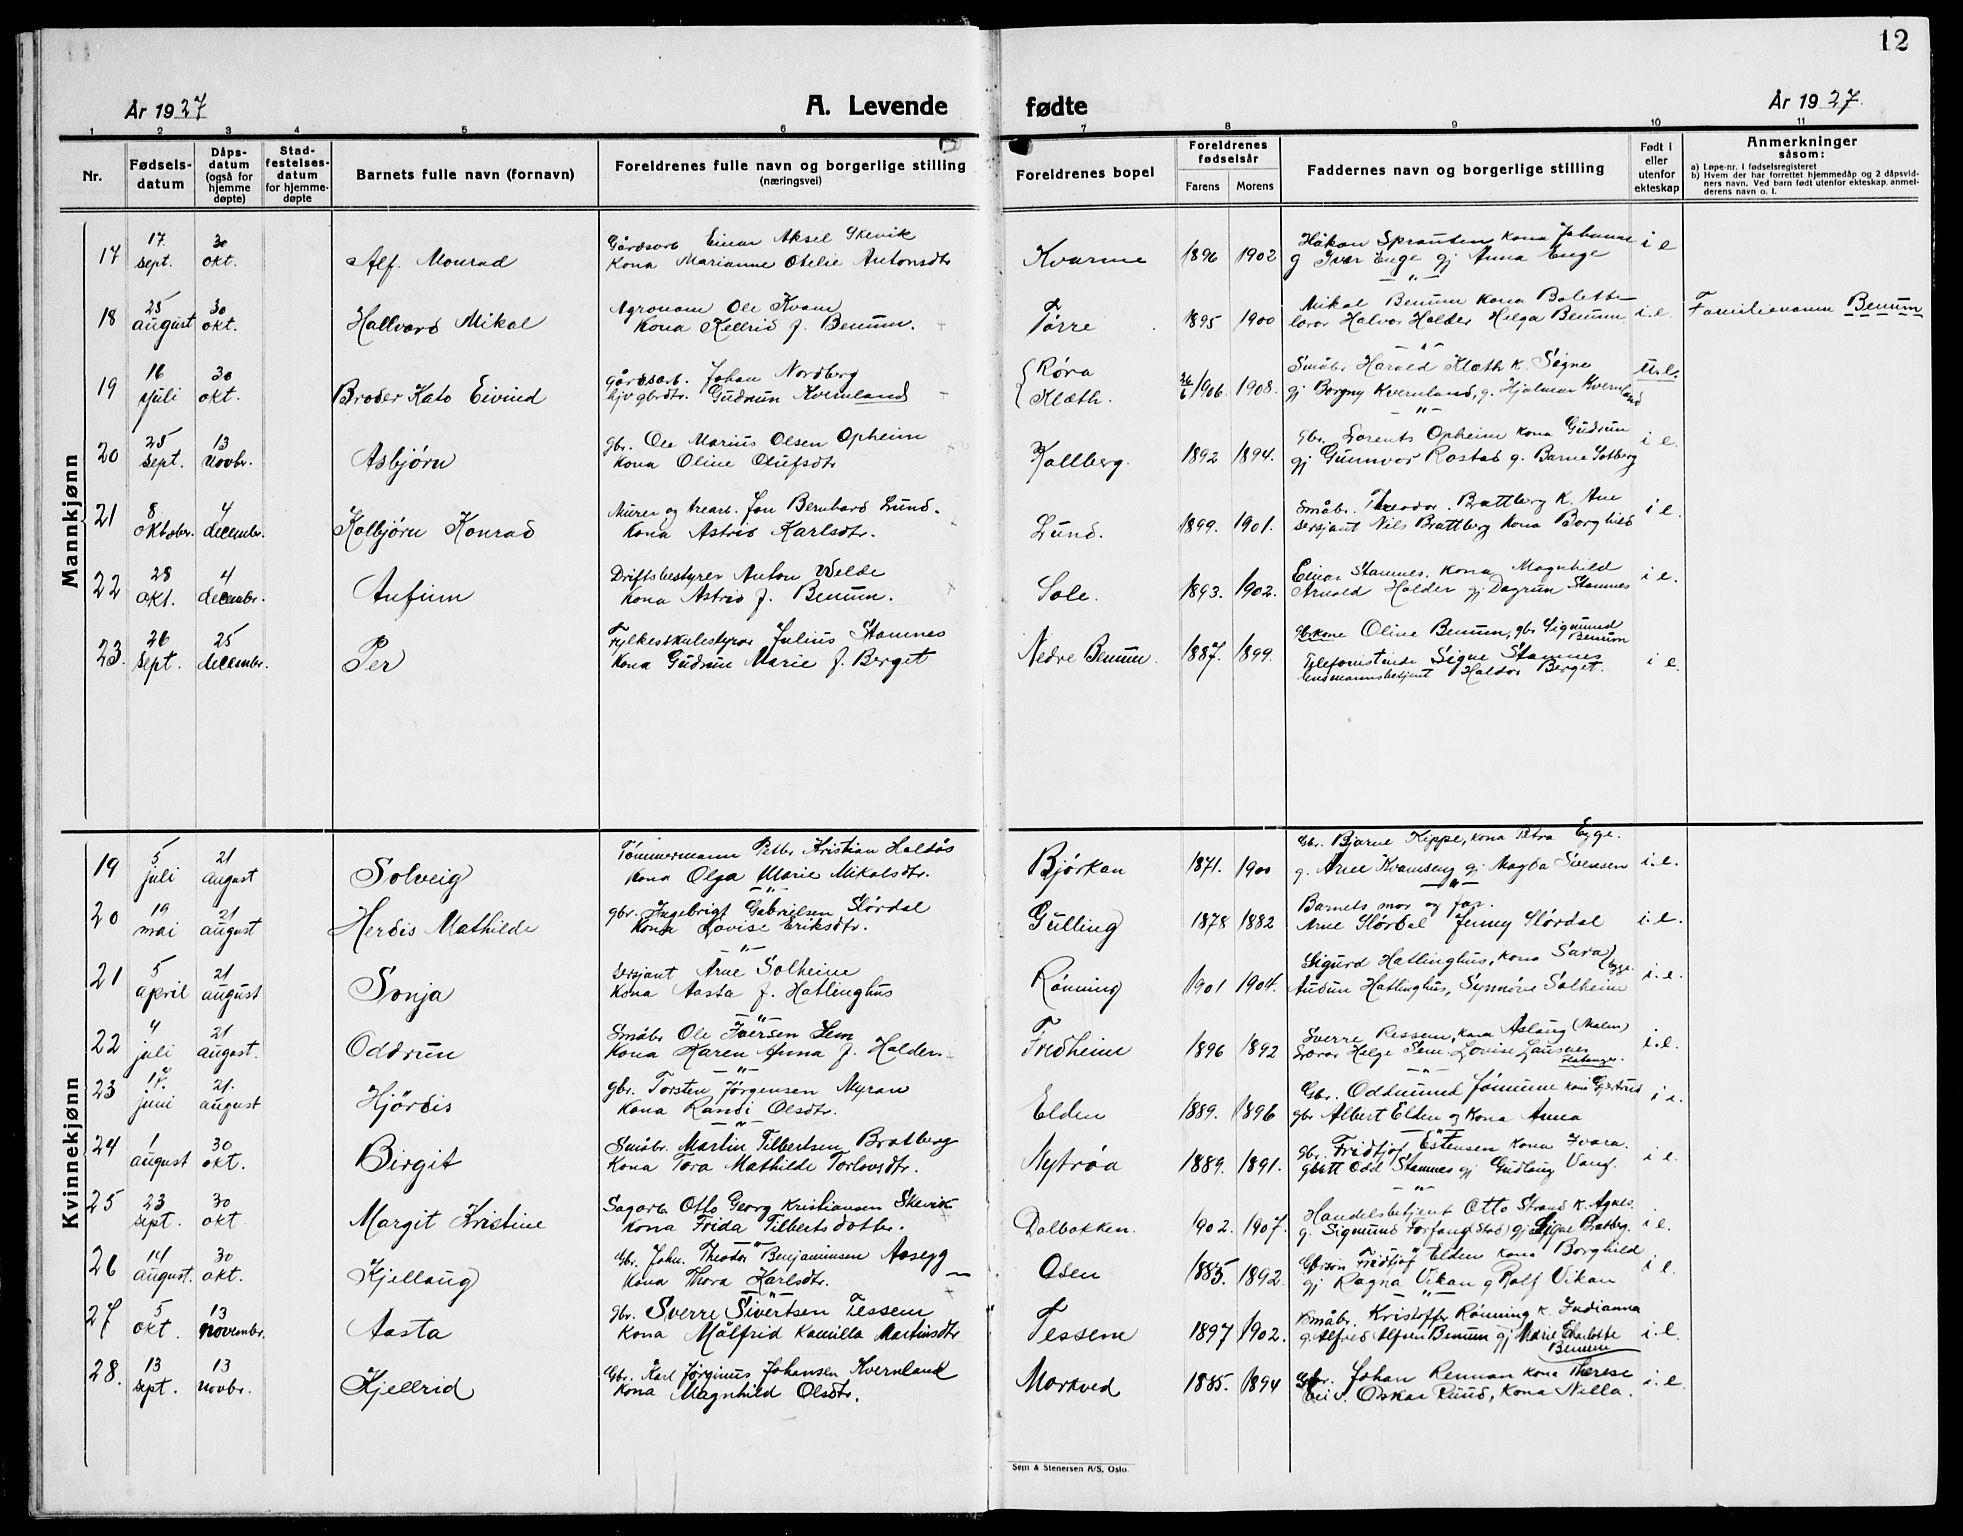 12
År 1927
A. Levende
fødte
År 1927.
1 2 3 4 5 6 7 8 9 10 11
Nr.
Fødsels-
datum
Dåps-
datum
(også for
hjemme
døpte)
Stad-
festelses-
datum
for hjemme-
døpte
Barnets fulle navn (fornavn)
Foreldrenes fulle navn og borgerlige stilling
(næringsvei)
Foreldrenes bopel
Foreldrenes
fødselsår
Farens Morens
Faddernes navn og borgerlige stilling
Født i
eller
utenfor
ekteskap
Anmerkninger
såsom:
a) Løpe-nr. i fødselsregisteret
b) Hvem der har forrettet hjemmedåp og 2 dåpsvid-
ners navn. Ved barn født utenfor ekteskap anmel-
derens navn o. l.
Mannkjønn
17
17. sept.
30 okt.
Alf. Monrad
Gårdsarb Einar Aksel Skevik
Kona Marianne Otelie Antonsdtr
Kvarme
1896 1902
Håkon Sprauten kona Johanne
g Iver Enge gj Anna Enge
i e
18
25 august
30 okt.
Hallvard Mikal
Agronom Ole Kvam
Kona Kellrid f. Benum.
Tørre
1895 1900
Mikal Benum kona Bolette
lærer Halvor Halder Helga Benum
i.e.
Familienavn Benum
19
16 juli
30 okt.
Broder Kato Eivind
gårdsarb. Johan Nordberg
hjv gbrdtr. Gudrun Kvernland
Røra
Klæth.
26/6 1906 1908.
Småbr. Harald Klæth k. Signe
gj Borgny Kvernland, g. Hjalmar Kvernland
u.e.
20
25 sept.
13 novbr.
Asbjørn
gbr. Ole Marius Olsen Opheim
Kona Oline Olufsdtr
Kallberg.
1892 1894.
gbr. Lorents Opheim kona Gudrun
gj Gunnvor Rostad g. Barne Solberg
i e.
21
8 oktober.
4 decembr.
Kolbjørn Konrad
Murer og trearb. Jon Bernhard Lund.
Kona Astrid Karlsdtr.
Lund.
1899. 1901.
Småbr. Theodor. Brattberg k. Ane
Sersjant Nils Brattberg kona Borghild
i e.
22
28 okt.
4 decembr.
Anfinn
Driftsbestyrer Anton Welde
Kona Astrid f. Benum.
Sole.
1893. 1902.
Einar Stamnes, kona Magnhild
Arnold Halder gj Dagrun Stamnes
i e.
23.
26 sept.
25 decembr.
Per
Fylkesskulestyrar Julius Stamnes
Kona Gudrun Marie f. Berget
Nedre Benum.
1887. 1899.
Gbrkone Oline Benum, gbr Sigmund
Benum
Telefonistinde Signe Stamnes
lensmannsbetjent Haldor Berget.
i e.
Kvinnekjønn
19
5 juli
21 august
Solveig
Tømmermann Petter Kristian Haldås
Kona Olga Marie Mikalsdtr.
Bjørkan
1871. 1900
Gbr. Bjarne Kippe, kona Petra Egge.
g. Arne Kvamseng gj Magda Svensen
i.e.
20
19 mai
21 august
Herdis Mathilde
gbr. Ingebrigt Gabrielsen Slørdal
Kona Lovise Eriksdtr.
Gulling
1878 1882
Barnets mor og far.
Arne Slørdal Jenny Slørdal
i.e.
21
5 april
21 august
Sonja
Sersjant Arne Solheim
Kona Aasta f. Hatlinghus
Rønning
1901 1904.
Sigurd Hatlinghus, kona Sara
Audun Hatlinghus, Synnøve Solheim
i.e.
22
4 juli
21 august.
Oddrun
Småbr Ole Iversen Sem
Kona Karen Anna f. Halden
Fredheim
1896 1892
Sverre Ressem, kona Aslaug (Malm)
Lærer Helge Sem. Lovise
i.e.
23
17. juni
21. august
Hjördis
gbr. Torsten Jørgensen Myran
Kona Randi Olsdtr.
Elden
1889. 1896
Gbr. Oddmund Jømunn kona Gjertrud
gbr Albert Elden og kona Anna
i e.
24
1 august
30 okt.
Birgit
Småbr. Martin Tilbertsen Bratberg
Kona Tora Mathilde Torlovsdtr.
Nytrøa
1889. 1891.
gbr. Fridtjof Estensen kona Ivara.
gbrtt Odd Stamnes gj Gudlaug Vang.
i e.
25
23 sept.
30 okt
Margit Kristine
Sagarb Otto Georg Kristiansen Skevik
Kona Frida Tilberts dotter.
Dalbakken.
1902. 1907.
Handelsbetjent Otto Strand k. Agnes.
g. Sigmund Forfang (Stod) gj Signe Bratberg.
i e.
26
14 august.
30 okt.
Kjellaug
Gbr. John. Theodor Benjaminsen Aasegg
Kona Thora Karlsdtr.
Osen
1885. 1892.
Fridtjof Elden kona Borghild
gj Ragna Vikan g Rolf Vikan
i e.
27
5 okt.
13 novembr.
Aasta
gbr. Sverre Sivertsen Tessem
Kona Målfrid Kamilla Martinsdtr
Tessem
1897 1902.
Småbr. Kristoffer Rønning k. Indianna
g. Alfred Alfsen Benum gj Marie Charlotte
Benum
i.e.
28.
13 sept.
13 novbr.
Kjellrid
Gbr. Karl Jørginus Johansen Kvernland
Kona Magnhild Olsdtr.
Morkved
1885. 1894
Gbr. Johan Rennan kona Therese
Eiv. Oskar Ruud, kona Nella.
i.e.
Sem & Stenersen A/S, Oslo.